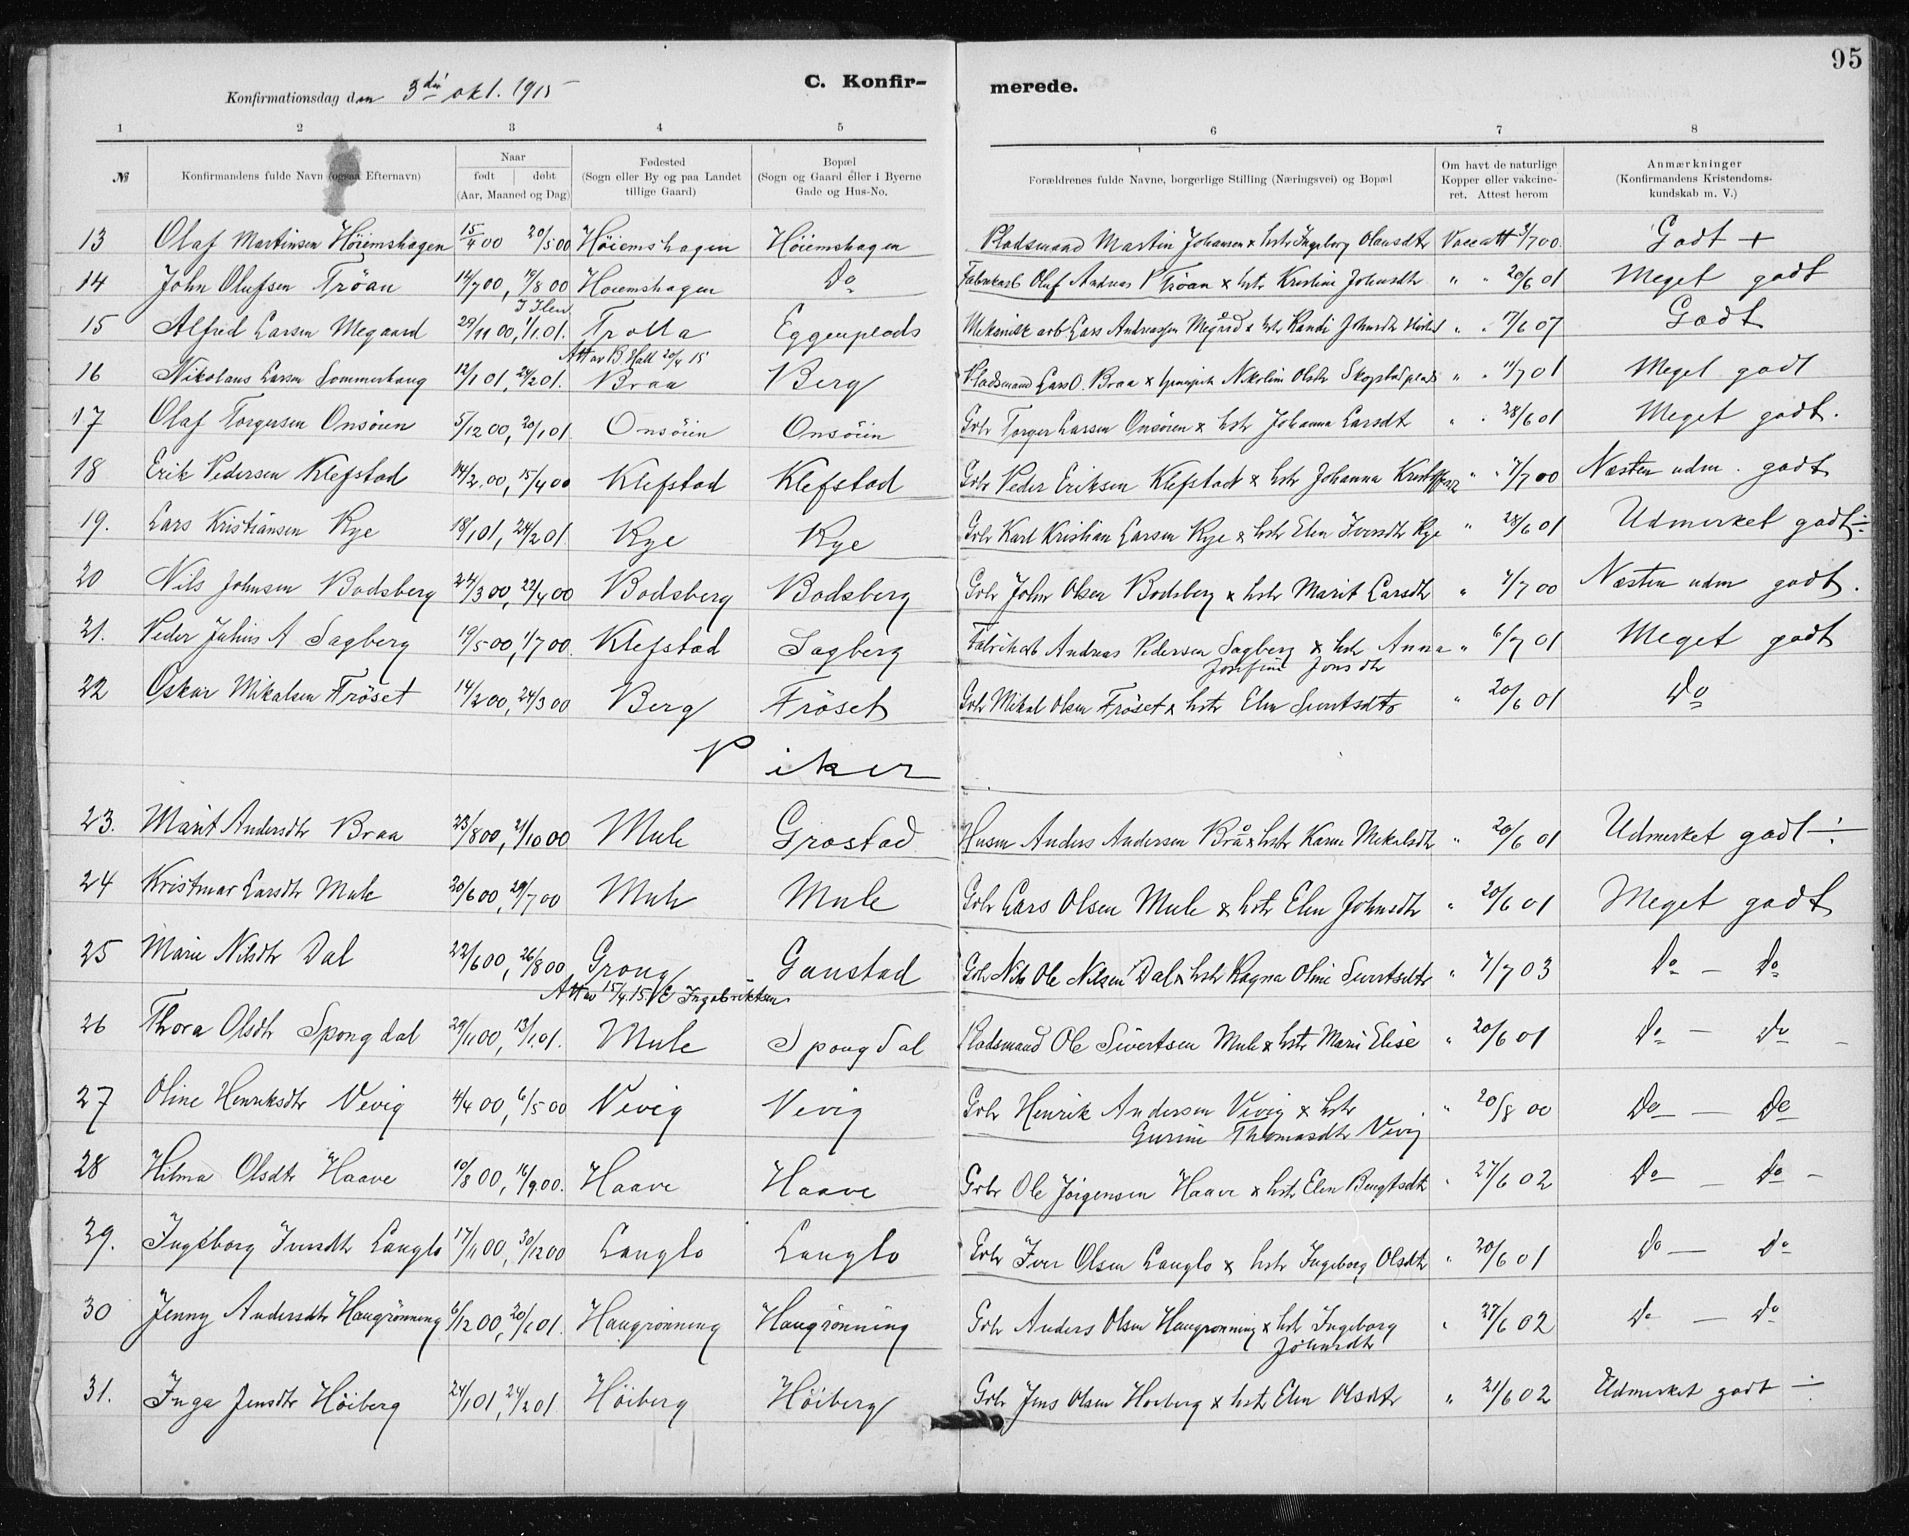 95
C. Konfir- merede.
Konfirmationsdag den 3die okt. 1915
1 2 3 4 5 6 7 8
№ Konfirmandens fulde Navn (ogsaa Efternavn) Naar født døbt (Aar, Maaned og Dag) Fødested (Sogn eller By og paa Landet tillige Gaard) Bopæl (Sogn og Gaard eller i Byerne Gade og Hus-No. Forældrenes fulde Navne, borgerlige Stilling (Næringsvei) og Bopæl Om havt de naturlige Kopper eller vakcineret. Attest herom Anmærkninger (Konfirmandens Kristendomskundskab m. V.)
13 Olaf Martinsen Höiemshagen 15/4 00 20/5 00 Höiemshagen Höiemshagen Pladsmand Martin Johansen & hstr Ingeborg Olausdtr Vaccatt 3/7 00. Godt +
14 John Olufsen Tröan 14/7 00, 19/8 00 Höiemshagen Do Fabrikarb Oluf Andreas P Tröan & hstr Kristine Johnsdtr " " 20/6 01 Meget godt
15 Alfred Larsen Megaard 29/11 00, 1/1 01. I Ilen Trolla Eggenplads Mekanisk arb Lars Andreassen Megård & hstr Randi Johnsdtr " " 17/6 07 Godt
Att av B Hall 20/4 15
16 Nikolaus Larsen Sommerhaug 12/1 01, 24/2 01. Braa Berg Pladsmand Lars O. Braa & Nikoline Olsdtr " " 11/7 01 Meget godt
17 Olaf Torgersen Onsöien 5/12 00, 20/1 01 Onsöien Onsöien Gbr Torger Larsen Onsöien & hstr Johanna Larsdt " " 28/6 01 Meget godt.
18 Erik Pedersen Klefstad 14/2 00, 15/4 00 Klefstad Klefstad Gbr Peder Eriksen Klefstad & hstr Johanna " " 7/7 00 Næsten udm. godt
19. Lars Kristiansen Rye 18/1 01, 24/2 01 Rye Rye Gbr Karl Kristian Larsen Rye & hstr Elen Iversdtr Rye " 28/6 01 Udmerket godt ÷
20 Nils Johnsen Bodsberg 24/3 00, 22/4 00 Bodsberg Bodsberg Gbr John Olsen Bodsberg & hstr Marit Larsdtr " 7/7 00 Næsten udm godt.
21. Peder Julius A Sagberg 19/5 00, 1/7 00. Klefstad Sagberg Fabrikarb Andreas Pedersen Sagberg & hstr Anna " 6/7 01 Meget godt
Josefine Jonsdtr
22 Oskar Mikalsen Fröset 14/2 00, 24/3 00 Berg Fröset Gbr Mikal Olsen Fröset & hstr Elen Sivertsdtr " 20/6 01 Do
Piker
23. Marit Andersdtr Braa 23/8 00, 21/10 00 Mule Grostad Husm Anders Andersen Brå & hstr Karen Mikalsdtr " 20/6 01 Udmerket godt ÷
24 Kristmar Larsdtr Mule 20/6 00, 29/7 00 Mule Mule Gbr Lars Olsen Mule & hstr Elen Johnsdtr " 20/6 01 Meget godt
25 Marie Nilsdtr Dal 22/6 00, 26/8 00 Grong Gaustad Gbr Nils Ole Nilsen Dal & hstr Ragna Oline Sivertsdtr " 7/7 03 Do — Do
Att av 15/4. 15. E Ingebriktsen
26 Thora Olsdtr Spongdal 29/11 00, 13/1 01. Mule Spongdal Pladsmand Ole Sivertsen Mule & hstr Marie Elise " 20/6 01 Do — Do —
27 Oline Henriksdtr Vevig 4/4 00, 6/5 00 Vevig Vevig Gbr Henrik Andersen Vevig & hstr " 20/8 00 Do — Do
Gurine Thomasdtr Vevig
28 Hilma Olsdtr Haave 10/8 00, 16/9 00. Haave Haave Gbr Ole Jörgensen Haave & hstr Elen Bengtsdtr " 27/6 02 Do — Do —
29. Ingeborg Iversdtr Langlo 17/11 00, 30/12 00 Langlo Langlo Gbr Iver Olsen Langlo & hstr Ingeborg Olsdtr " 20/6 01 Do — Do
30 Jenny Andersdtr Haugrönning 6/12 00, 20/1 01. Haugrönning Haugrönning Gbr Anders Olsen Haugrönning & hstr Ingeborg " 27/6 02 Do — Do
Johnsdtr
31. Inga Jensdtr Höiberg 24/1 01, 24/2 01. Höiberg Höiberg Gbr Jens Olsen Höiberg & hstr Elen Olsdtr " 21/6 02 Udmerket godt ÷